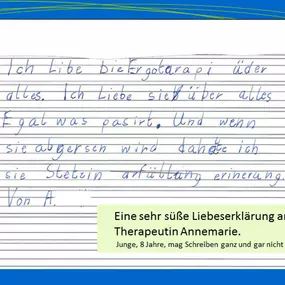 Ich Libe die Ergotarapi üder
alles. Ich Liebe sie über alles
Egal was pasirt. Und wenn
sie abgersch wird dahate ich
sie Stetein arfüllung erinerung.
Von A.
Eine sehr süße Liebeserklärung an
Therapeutin Annemarie.
Junge, 8 Jahre, mag Schreiben ganz und gar nicht